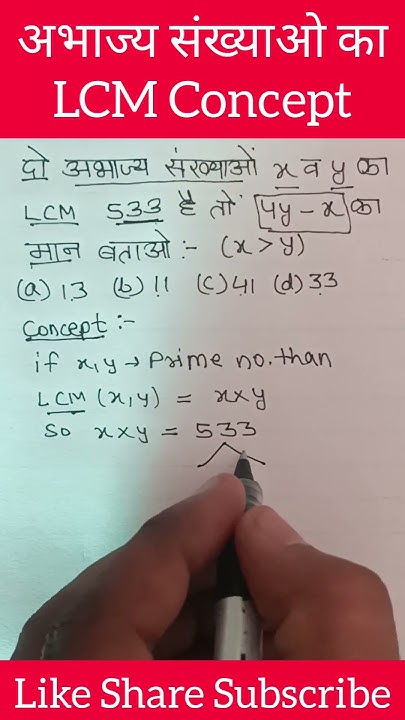 अभाज्य संख्याओ का
LCM Concept
दो अभाज्य संख्याओं x व y का
LCM 533 है तो 4y - x का
मान बताओ :- (x > y)
(a) 13 (b) 11 (c) 41 (d) 33
Concept :-
if x, y → Prime no. than
LCM (x, y) = x×y
So x×y = 533
Like Share Subscribe